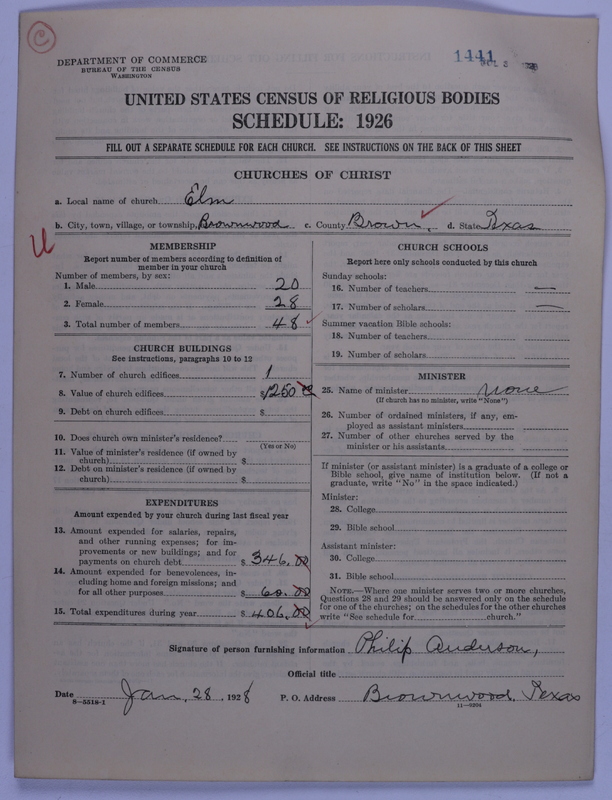 C
DEPARTMENT OF COMMERCE
BUREAU OF THE CENSUS
WASHINGTON
1441
UNITED STATES CENSUS OF RELIGIOUS BODIES
SCHEDULE: 1926
FILL OUT A SEPARATE SCHEDULE FOR EACH CHURCH. SEE INSTRUCTIONS ON THE BACK OF THIS SHEET
CHURCHES OF CHRIST
a. Local name of church Elm
b. City, town, village, or township, Brownwood c. County Brown, d. State Texas
U
MEMBERSHIP
Report number of members according to definition of
member in your church
Number of members, by sex:
1. Male 20
2. Female 28
3. Total number of members 48
CHURCH BUILDINGS
See instructions, paragraphs 10 to 12
7. Number of church edifices 1
8. Value of church edifices $1250 00
9. Debt on church edifices $
10. Does church own minister's residence?
(Yes or No)
11. Value of minister's residence (if owned by
church) $
12. Debt on minister's residence (if owned by
church) $
EXPENDITURES
Amount expended by your church during last fiscal year
13. Amount expended for salaries, repairs,
and other running expenses; for im-
provements or new buildings; and for
payments on church debt $ 346.00
14. Amount expended for benevolences, in-
cluding home and foreign missions; and
for all other purposes $ 60.00
15. Total expenditures during year $ 406.00
CHURCH SCHOOLS
Report here only schools conducted by this church
Sunday schools:
16. Number of teachers —
17. Number of scholars —
Summer vacation Bible schools:
18. Number of teachers
19. Number of scholars
MINISTER
25. Name of minister none
(If church has no minister, write "None")
26. Number of ordained ministers, if any, em-
ployed as assistant ministers
27. Number of other churches served by the
minister or his assistants
If minister (or assistant minister) is a graduate of a college or
Bible school, give name of institution below. (If not a
graduate, write "No" in the space indicated.)
Minister:
28. College
29. Bible school
Assistant minister:
30. College
31. Bible school
NOTE.—Where one minister serves two or more churches,
Questions 28 and 29 should be answered only on the schedule
for one of the churches; on the schedules for the other churches
write "See schedule for church."
Signature of person furnishing information Philip Anderson,
Official title
Date Jan, 28, 1928 P. O. Address Brownwood. Texas
8—5518-1 11—9204